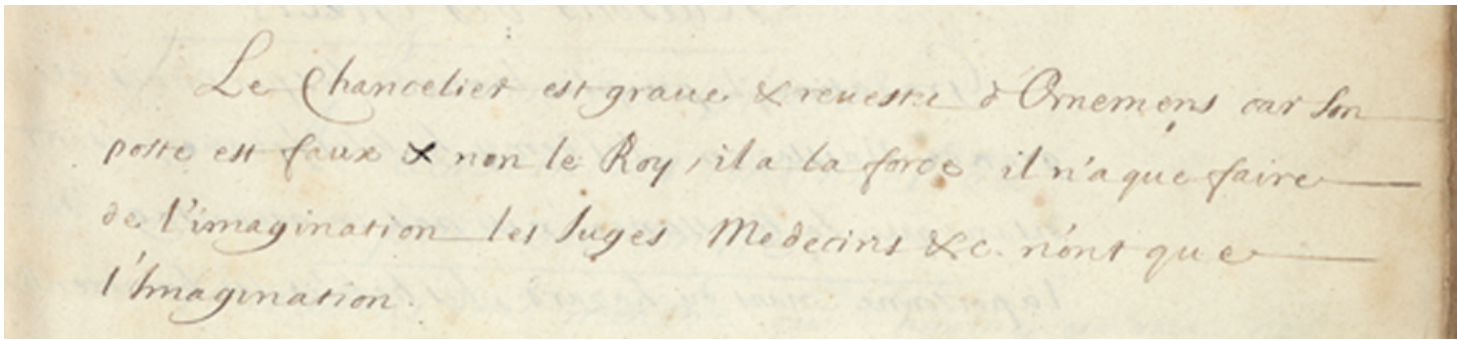 Le Chancelier est graue & reuestu d'Ornemens car son
poste est faux & non le Roy, il a la force il n'a que faire
de l'imagination les Juges Medecins &c. n'ont que
l'Imagination.